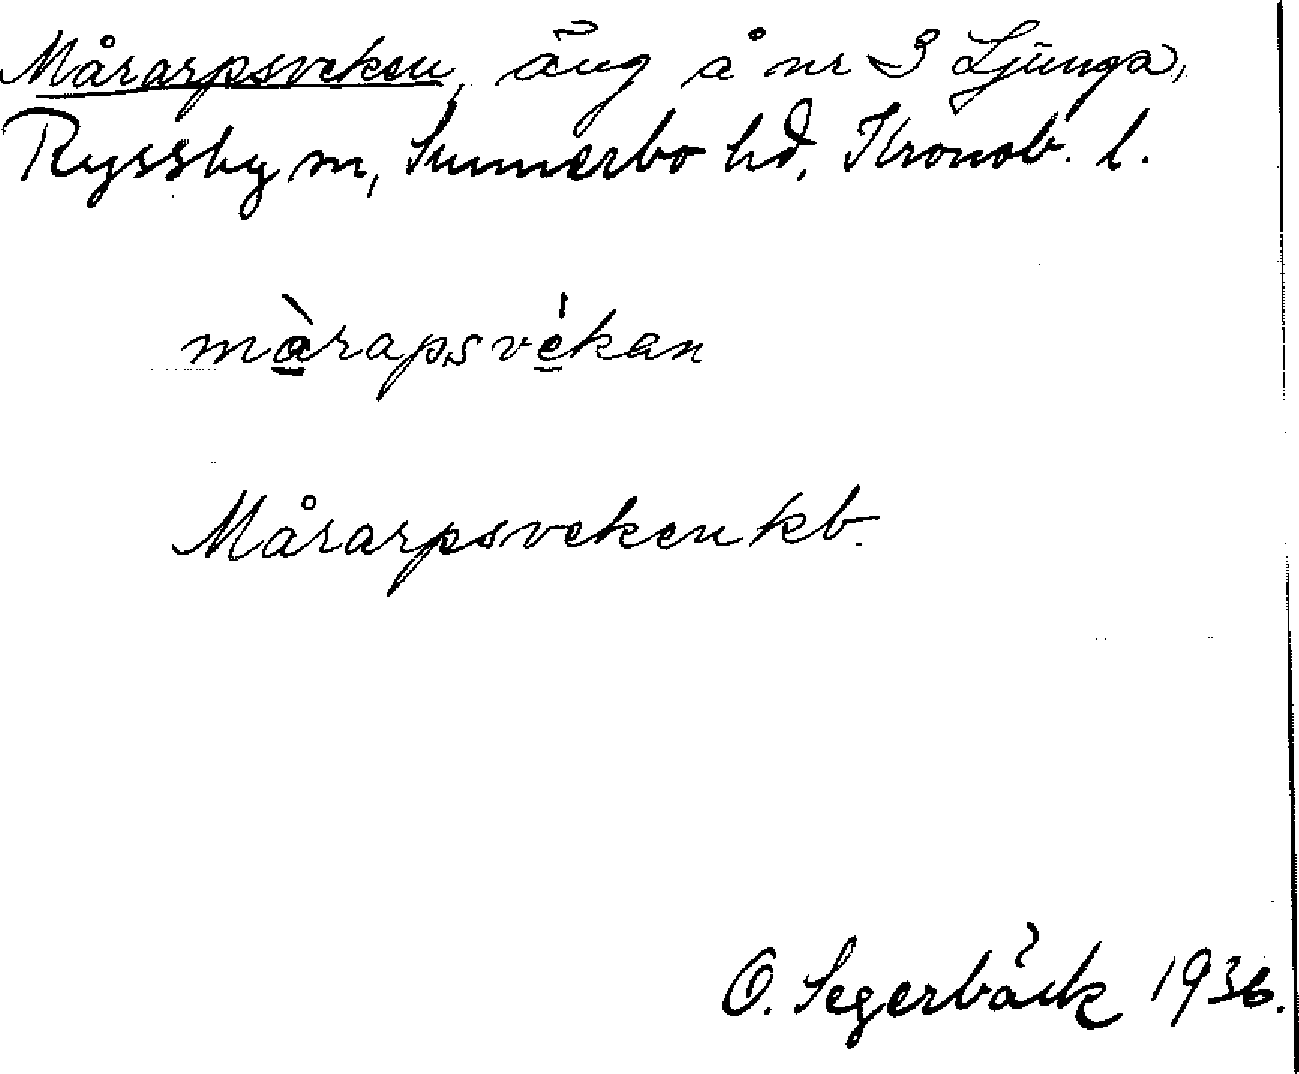 Mårarpsveken, äng å nr 3 Ljunga,
Ryssby sn, Sunnerbo hd, Kronob. l.
màrapsvékan
Mårarpsveken kb.
O. Segerbäck 1936.